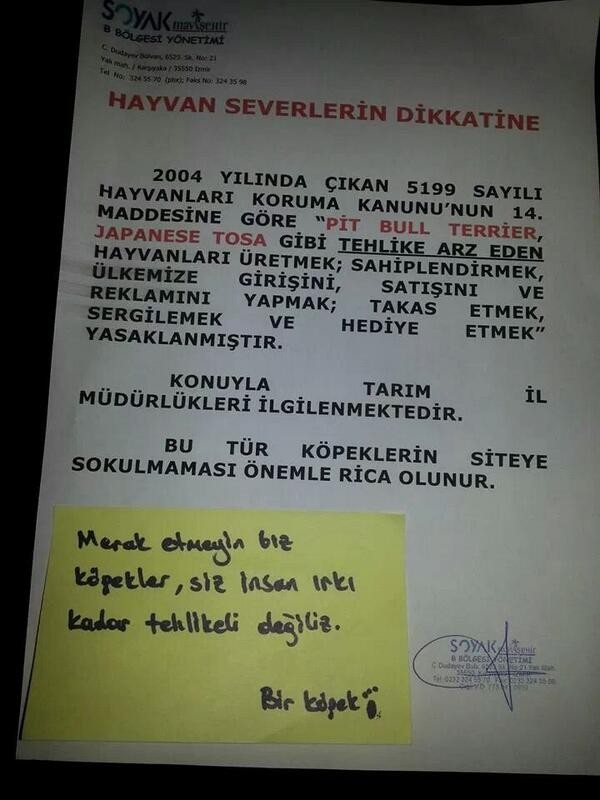 SOYAK mavişehir
B BÖLGESİ YÖNETİMİ
C. Dudayev Bulvarı, 6523. Sk. No: 21
Yalı mah. / Karşıyaka / 35550 İzmir
Tel No: 324 55 70 (pbx); Faks No: 324 35 98
HAYVAN SEVERLERİN DİKKATİNE
2004 YILINDA ÇIKAN 5199 SAYILI
HAYVANLARI KORUMA KANUNU'NUN 14.
MADDESİNE GÖRE "PİT BULL TERRİER,
JAPANESE TOSA GİBİ TEHLİKE ARZ EDEN
HAYVANLARI ÜRETMEK; SAHİPLENDİRMEK,
ÜLKEMİZE GİRİŞİNİ, SATIŞINI VE
REKLAMINI YAPMAK; TAKAS ETMEK,
SERGİLEMEK VE HEDİYE ETMEK"
YASAKLANMIŞTIR.
KONUYLA TARIM İL
MÜDÜRLÜKLERİ İLGİLENMEKTEDİR.
BU TÜR KÖPEKLERİN SİTEYE
SOKULMAMASI ÖNEMLE RİCA OLUNUR.
Merak etmeyin biz
köpekler, siz insan ırkı
kadar tehlikeli değiliz.
Bir köpek
SOYAK mavişehir
B BÖLGESİ YÖNETİMİ
C Dudayev Bulv. No:21 Yalı Mah.
35550
Tel: 0232 324 55 70